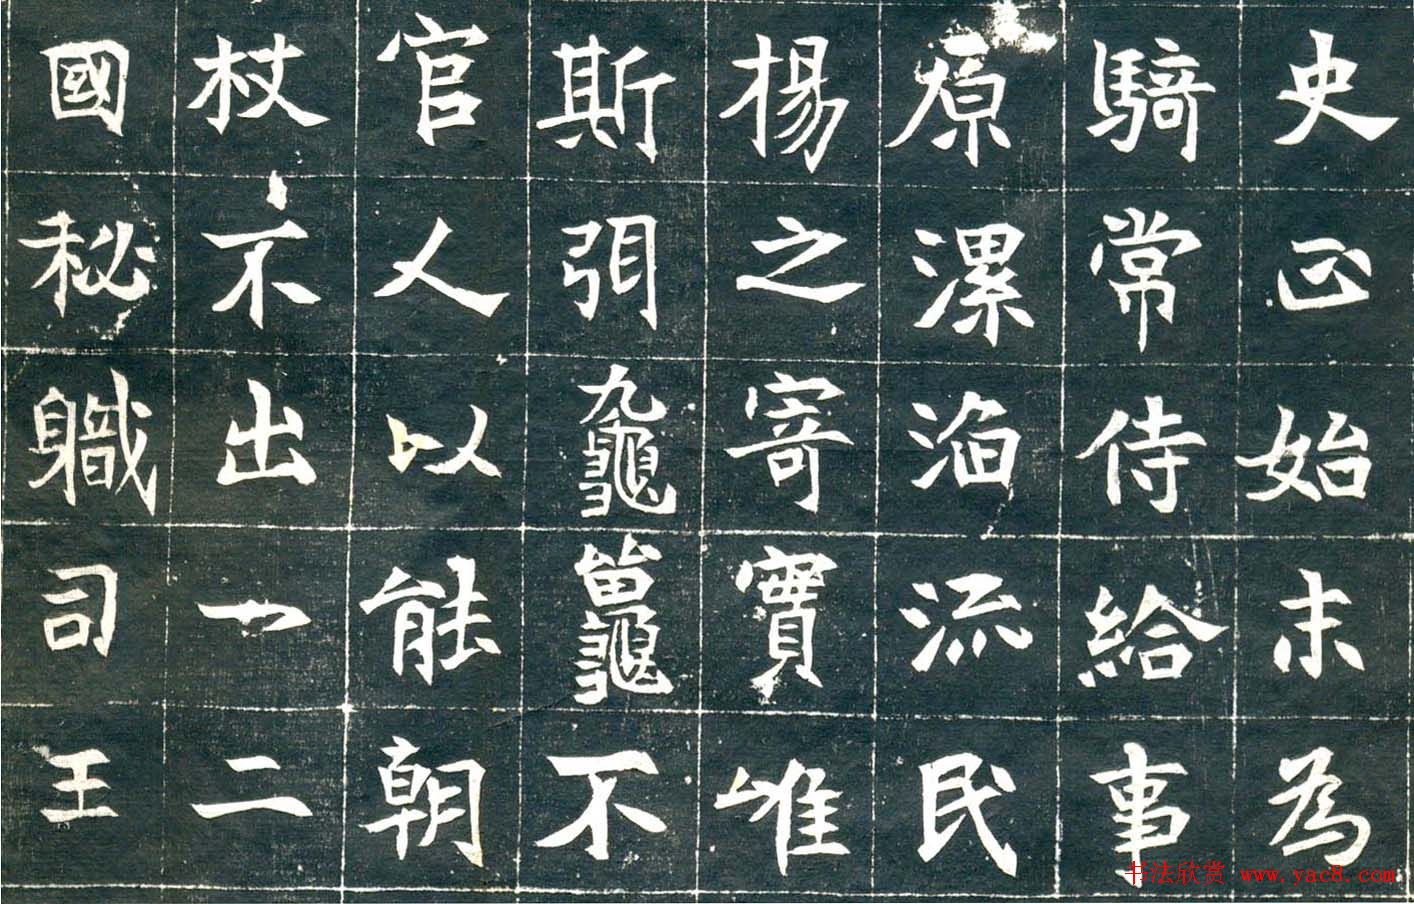 史正始末為
騎常侍給事
原漯淊流民
楊之寄實唯
斯弭不
官人以能朝
杖不出一二
國秘職司王
书法欣赏 www.yac8.com